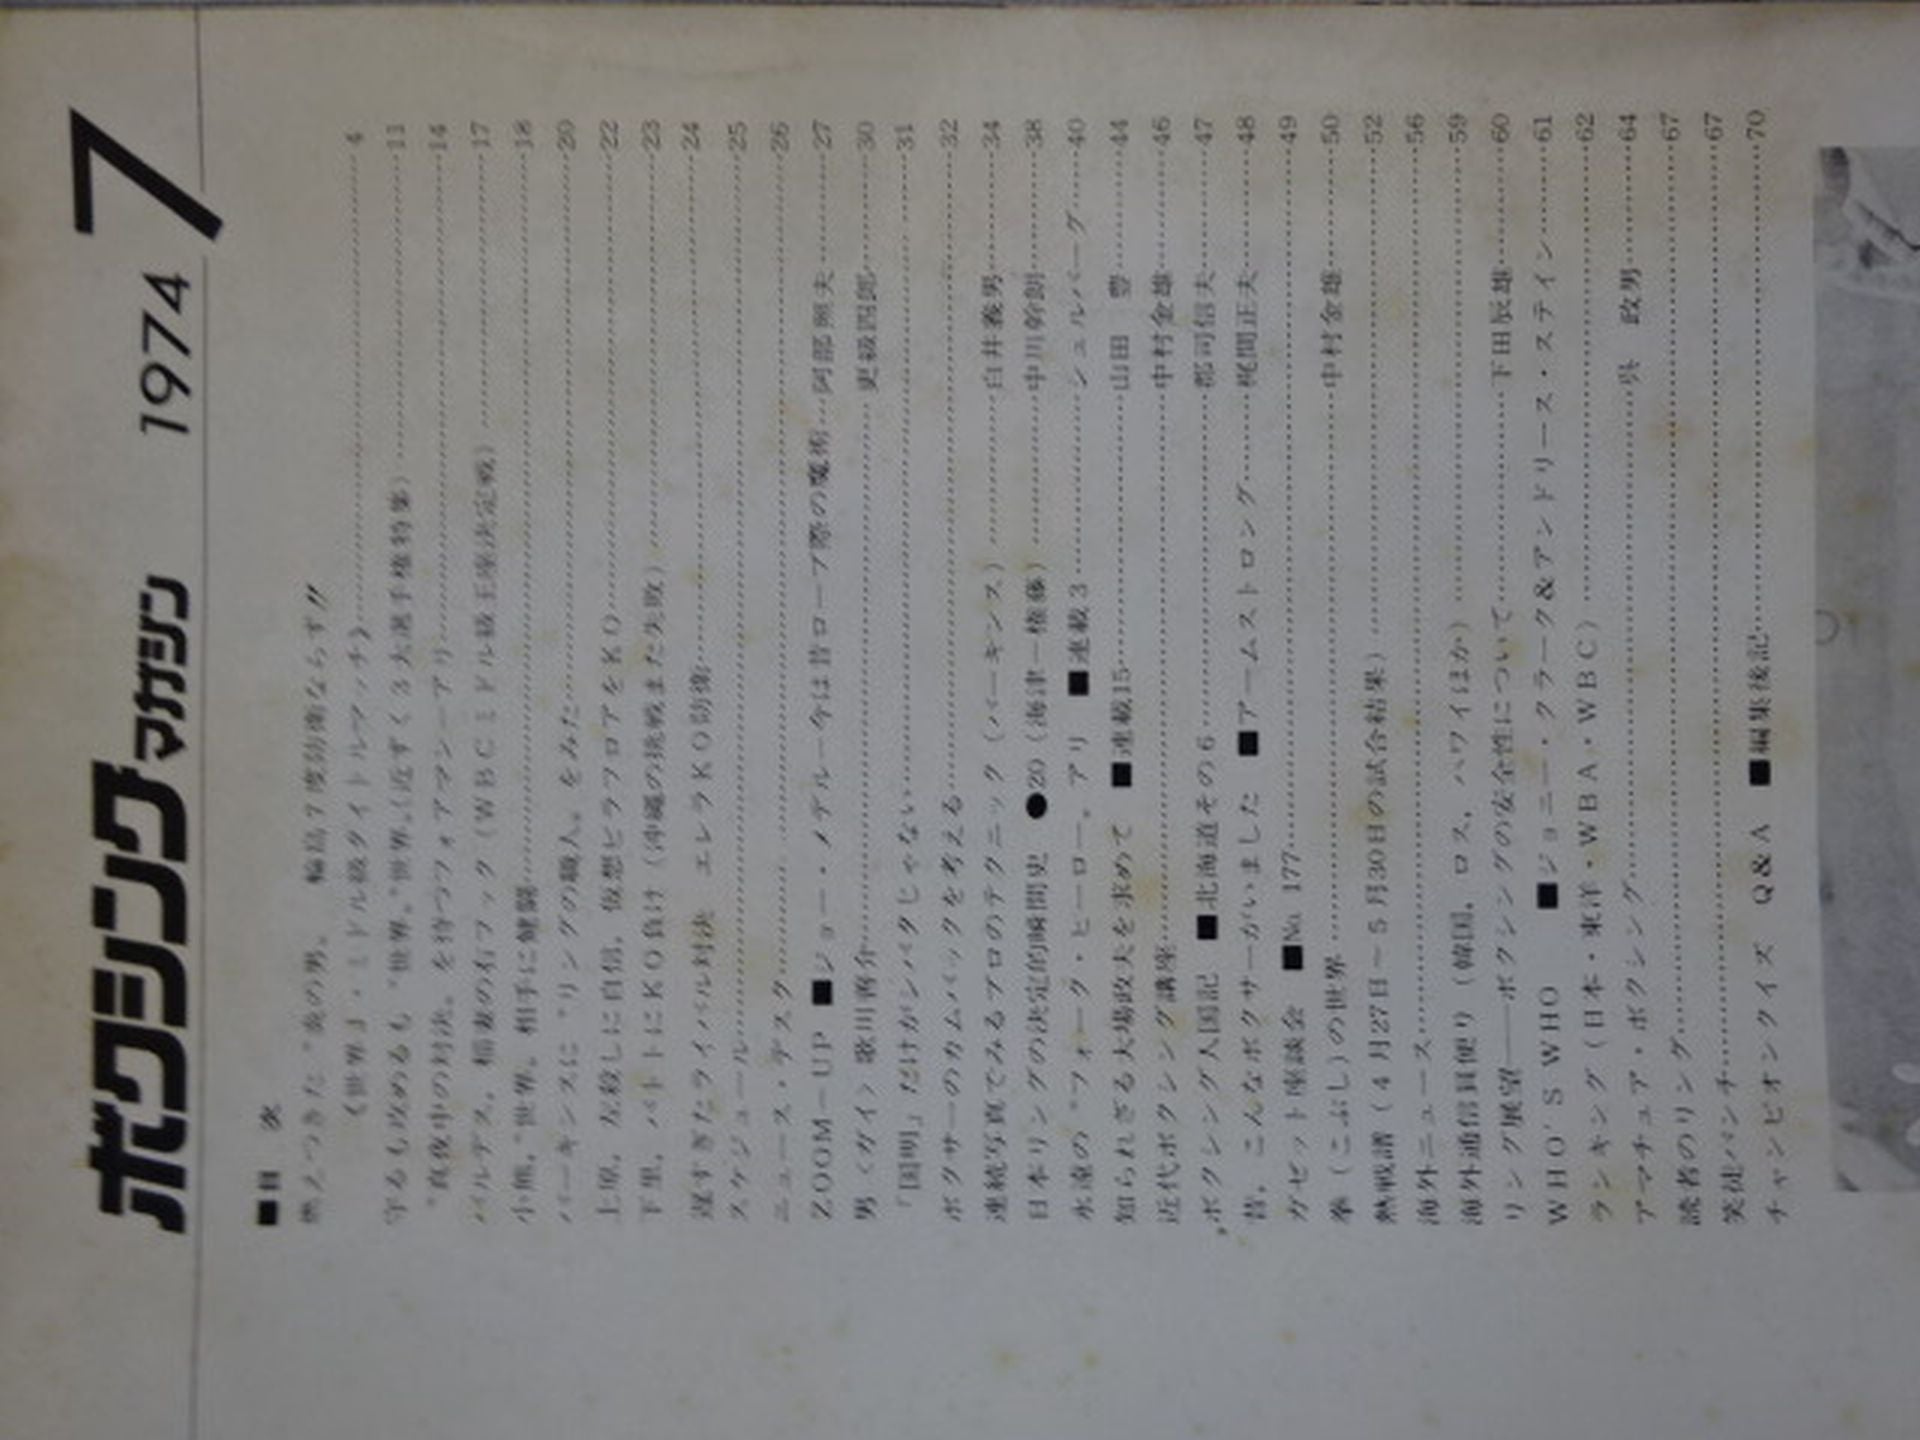 ボクシングマガジン 1974 7
■目 次
燃えつきた〝炎の男〟 輪島7度防衛ならず!!
《世界J・ミドル級タイトルマッチ》……4
守るも攻めるも〝世界〟(近づく3大選手権特集)……11
〝真夜中の対決〟を待つフォアマン―アリ……14
バルデス、稲妻の右フック(WBCミドル級王座決定戦)……17
小熊、〝世界〟相手に健闘……18
パーキンスに〝リングの職人〟をみた……20
上原、左殺しに自信、仮想ビラフロアをKO……22
下里、バトトにKO負け(沖縄の挑戦また失敗)……23
遅すぎたライバル対決 エレラKO防衛……24
スケジュール……25
ニュース・デスク……26
ZOOM―UP ■ジョー・メデル―今は昔ロープ際の魔術…阿部照夫……27
男〈ガイ〉歌川善介……更級四郎……30
「国明」だけがシバタじゃない……31
ボクサーのカムバックを考える……32
連続写真でみるプロのテクニック(パーキンス)……白井義男……34
日本リングの決定的瞬間史 ●20(海津―権藤)……中川幹朗……38
永遠の〝フォーク・ヒーロー〟アリ ■連載3……シュルバーグ……40
知られざる大場政夫を求めて ■連載15……山田 豊……44
近代ボクシング講座……中村金雄……46
ボクシング人国記 ■北海道その6……郡司信夫……47
昔、こんなボクサーがいました ■アームストロング……梶間正夫……48
ガゼット座談会 ■No. 177……49
拳(こぶし)の世界……中村金雄……50
熱戦譜(4月27日~5月30日の試合結果)……52
海外ニュース……56
海外通信員便り(韓国、ロス、ハワイほか)……59
リング展望――ボクシングの安全性について……下田辰雄……60
WHO'S WHO ■ジョニー・クラーク&アンドリース・ステイン……61
ランキング(日本・東洋・WBA・WBC)……62
アマチュア・ボクシング……呉 政男……64
読者のリング……67
笑徒パンチ……67
チャンピオンクイズ Q&A ■編集後記……70